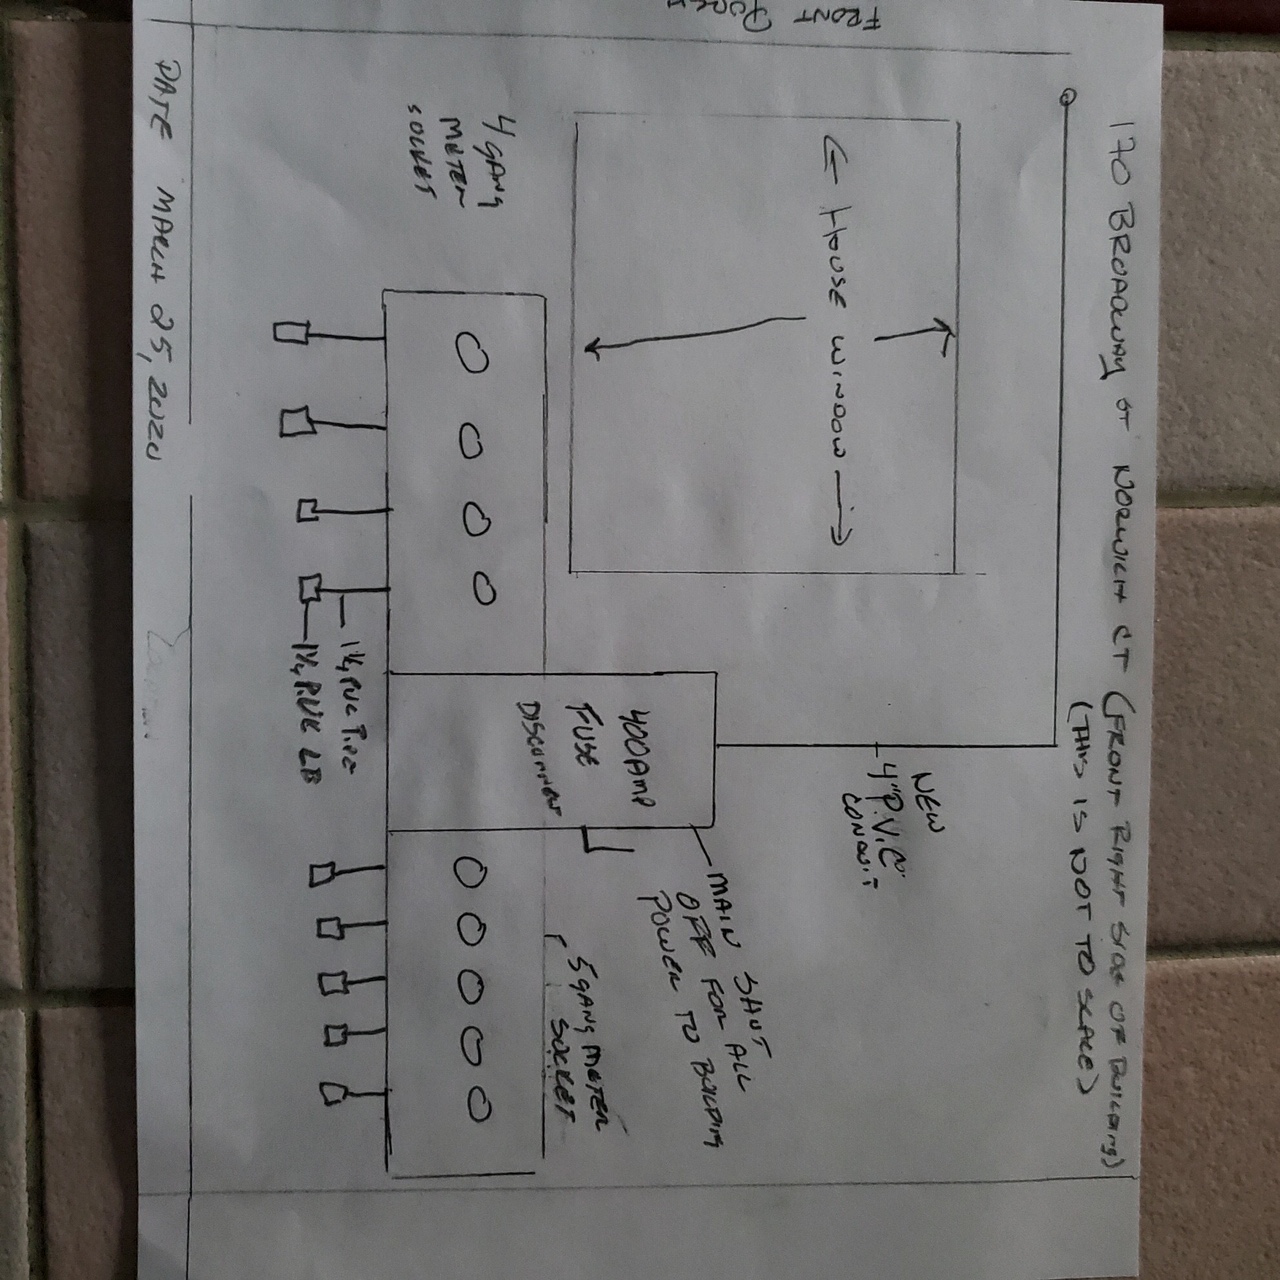 170 BROADWAY ST NORWICH CT (FRONT RIGHT SIDE OF BUILDING)
(THIS IS NOT TO SCALE)
FRONT
NEW
4" P.V.C.
CONDUIT
← HOUSE WINDOW →
MAIN SHUT
OFF FOR ALL
POWER TO BUILDING
400 AMP
FUSE
DISCONNECT
4 GANG
METER
SOCKET
5 GANG METER
SOCKET
1¼ PVC PIPE
1¼ PVC LB
DATE MARCH 25, 2020